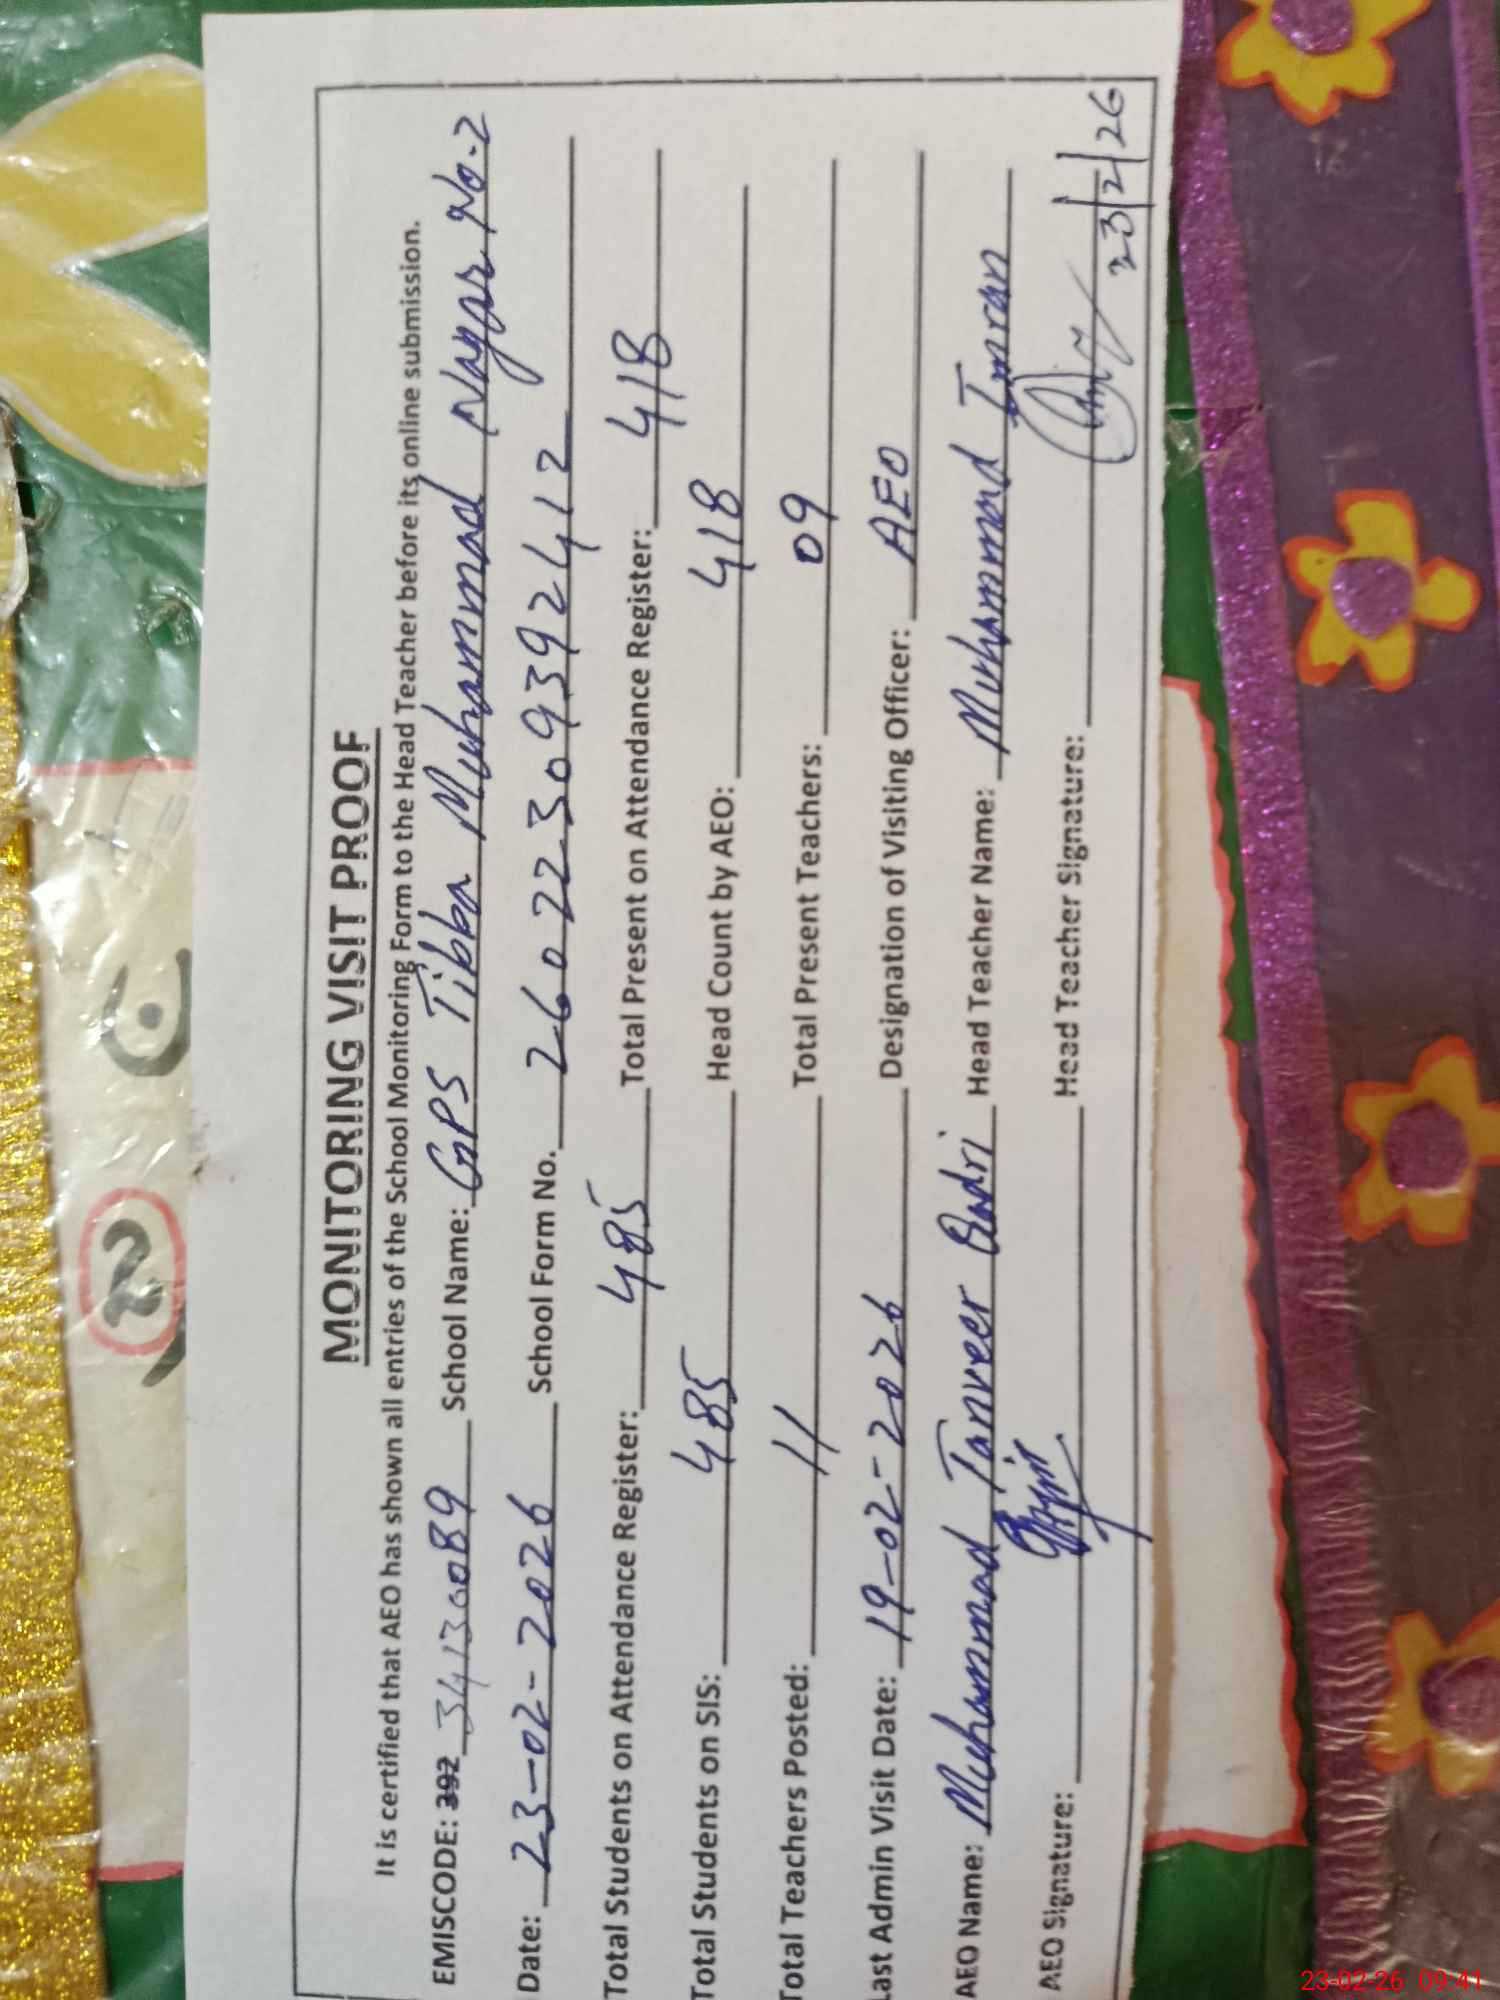 MONITORING VISIT PROOF
It is certified that AEO has shown all entries of the School Monitoring Form to the Head Teacher before its online submission.
EMISCODE: 392 34130089 School Name: GPS Tibba Muhammad Nagar No.2
Date: 23-02-2026 School Form No. 26022309392412
Total Students on Attendance Register: 485 Total Present on Attendance Register: 418
Total Students on SIS: 485 Head Count by AEO: 418
Total Teachers Posted: 11 Total Present Teachers: 09
Last Admin Visit Date: 19-02-2026 Designation of Visiting Officer: AEO
AEO Name: Muhammad Tanveer Qadri Head Teacher Name: Muhammad Imran
AEO Signature: Head Teacher Signature: 23/2/26
23-02-26 09:41